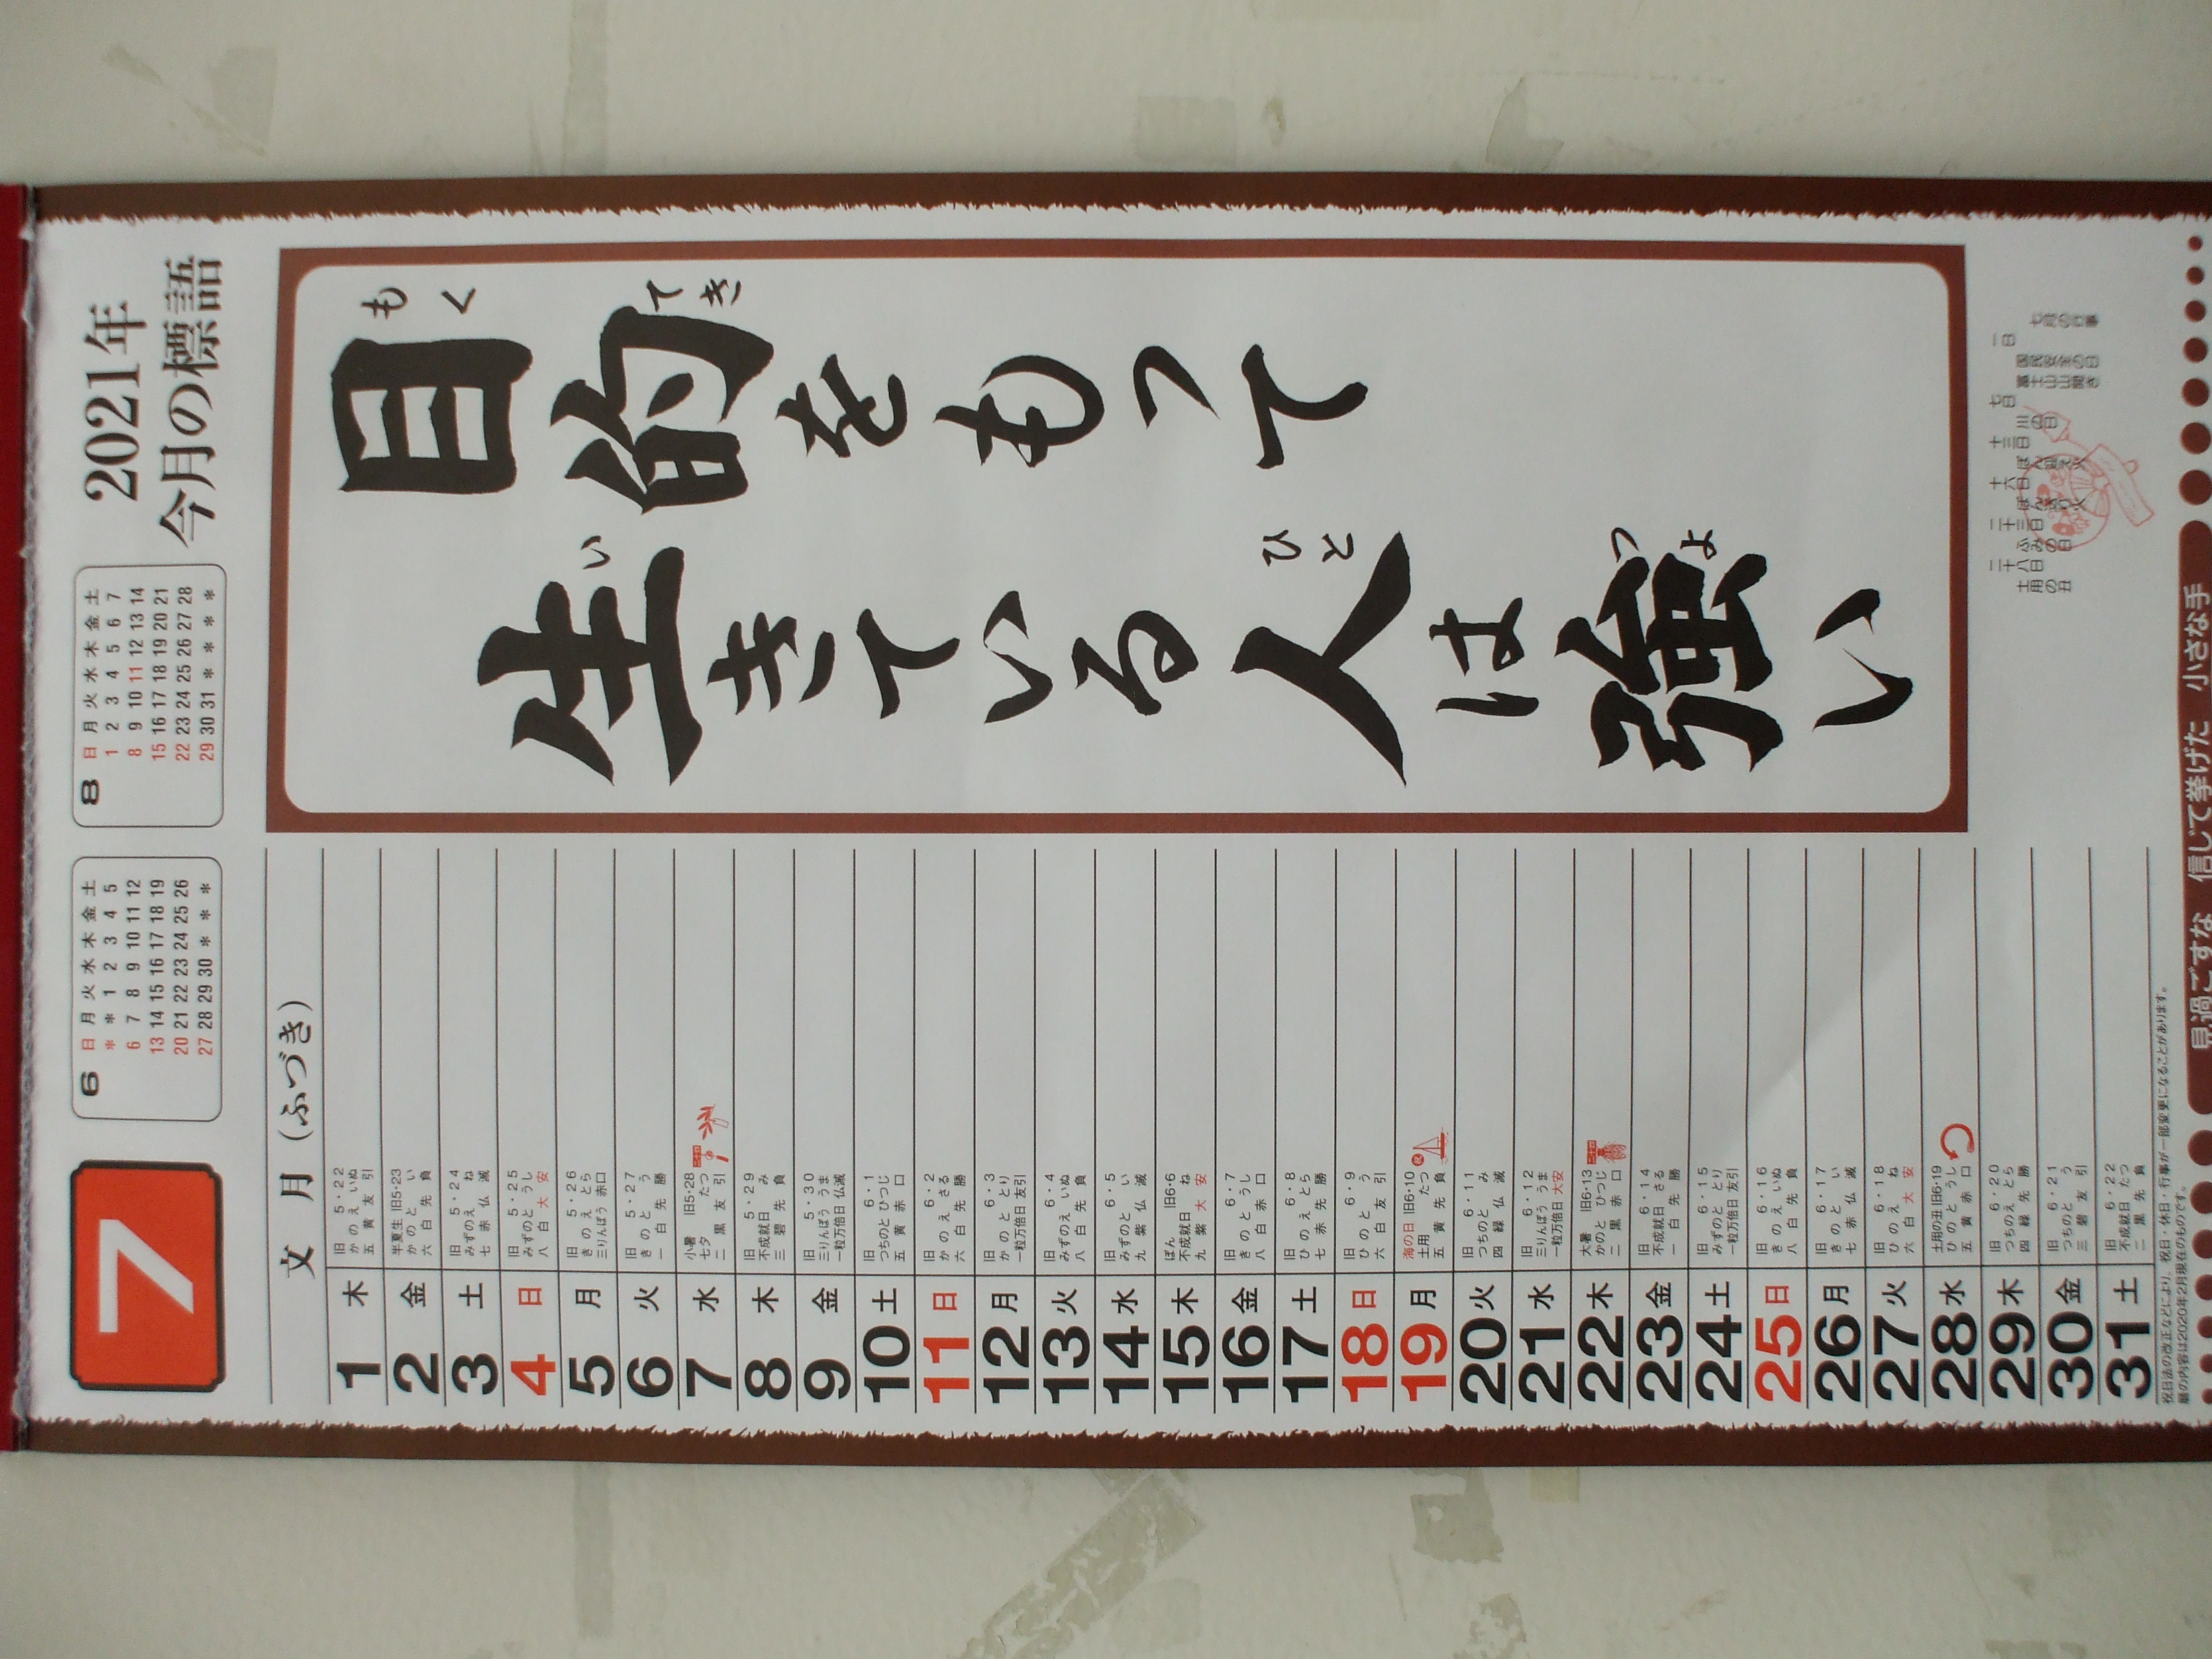 7
6
日 月 火 水 木 金 土
* * 1 2 3 4 5
6 7 8 9 10 11 12
13 14 15 16 17 18 19
20 21 22 23 24 25 26
27 28 29 30 * * *
8
日 月 火 水 木 金 土
1 2 3 4 5 6 7
8 9 10 11 12 13 14
15 16 17 18 19 20 21
22 23 24 25 26 27 28
29 30 31 * * * *
2021年
今月の標語
目的をもって
もくてき
生きている人は強い
い ひと つよ
文月(ふづき)
1 木 旧 5・22 かのえ いぬ 五黄 友引
2 金 半夏生 旧5・23 かのと い 六白 先負
3 土 旧 5・24 みずのえ ね 七赤 仏滅
4 日 旧 5・25 みずのと うし 八白 大安
5 月 旧 5・26 きのえ とら 三りんぼう 赤口
6 火 旧 5・27 きのと う 一白 先勝
7 水 小暑 旧5・28 七夕 たつ 二黒 友引
8 木 旧 5・29 不成就日 み 三碧 先負
9 金 旧 5・30 三りんぼう うま 一粒万倍日 仏滅
10 土 旧 6・1 つちのと ひつじ 五黄 赤口
11 日 旧 6・2 かのえ さる 六白 先勝
12 月 旧 6・3 かのと とり 一粒万倍日 友引
13 火 旧 6・4 みずのえ いぬ 八白 先負
14 水 旧 6・5 みずのと い 九紫 仏滅
15 木 ぼん 旧6・6 不成就日 ね 九紫 大安
16 金 旧 6・7 きのと うし 八白 赤口
17 土 旧 6・8 ひのえ とら 七赤 先勝
18 日 旧 6・9 ひのと う 六白 友引
19 月 海の日 旧6・10 土用 たつ 五黄 先負
20 火 旧 6・11 つちのと み 四緑 仏滅
21 水 旧 6・12 三りんぼう うま 一粒万倍日 大安
22 木 大暑 旧6・13 かのと ひつじ 二黒 赤口
23 金 旧 6・14 不成就日 さる 一白 先勝
24 土 旧 6・15 みずのと とり 一粒万倍日 友引
25 日 旧 6・16 きのえ いぬ 八白 先負
26 月 旧 6・17 きのと い 七赤 仏滅
27 火 旧 6・18 ひのえ ね 六白 大安
28 水 土用の丑 旧6・19 ひのと うし 五黄 赤口
29 木 旧 6・20 つちのえ とら 四緑 先勝
30 金 旧 6・21 つちのと う 三碧 友引
31 土 旧 6・22 不成就日 たつ 二黒 先負
七月の行事
一日
国民安全の日
富士山山開き
七日
川の日
十三日
ぼん迎え火
十六日
ぼん送り火
二十三日
ふみの日
二十八日
土用の丑
祝日法の改正などにより、祝日・休日・行事が一部変更になることがあります。
暦の内容は2020年2月現在のものです。
見過ごすな 信じて挙げた 小さな手